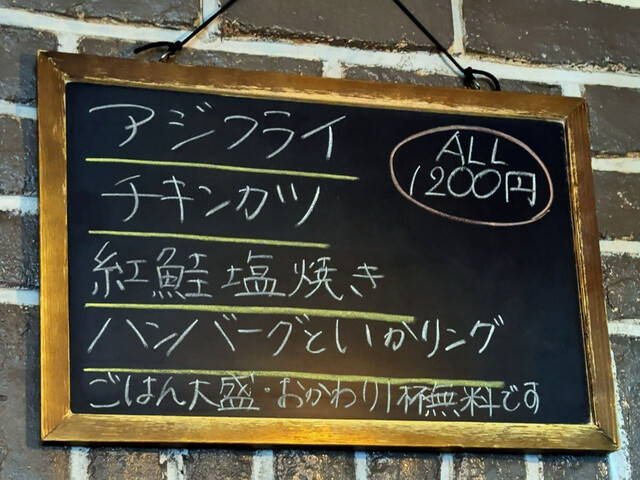 アジフライ
ALL
1200円
チキンカツ
紅鮭塩焼き
ハンバーグといかリング
ごはん大盛・おかわり1杯無料です